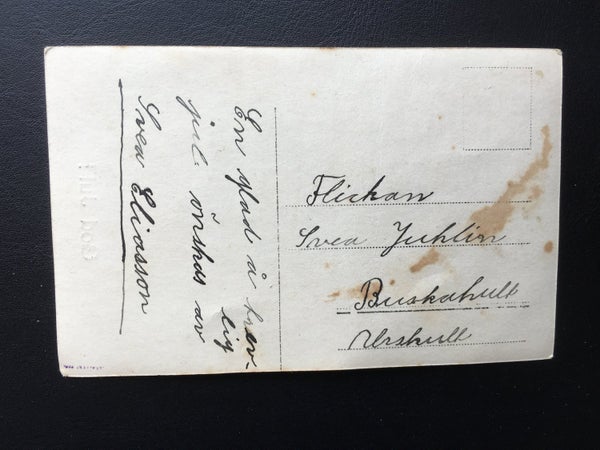 En glad å trev-
lig
jul önskas av
Svea Eliasson
Flickan
Svea Juhlin
Buskahult
Urshult